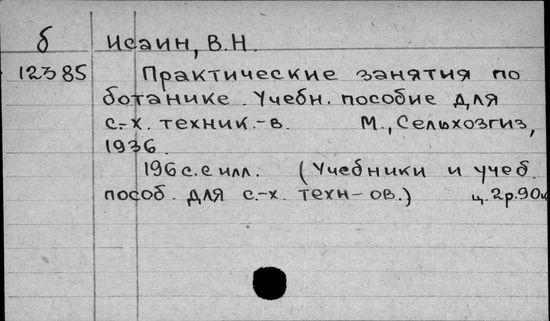 б Исаин, В.Н.
12385 Практические занятия по
ботанике. Учебн. пособие для
с.-х. техник.-в. М., Сельхозгиз,
1936.
196 с. с илл. (Учебники и учеб.
пособ. для с.-х. техн-ов.) ц. 2р.90к